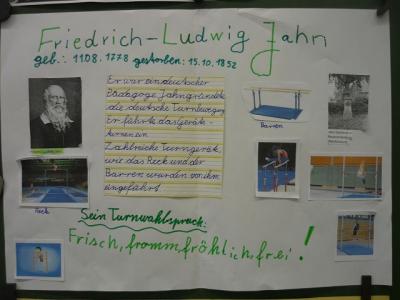 Friedrich-Ludwig Jahn
geb.: 11.08.1778 gestorben: 15.10.1852
Er war ein deutscher
Pädagoge. Jahn gründete
die deutsche Turnbewegung.
Er führte das Gerät-
turnen ein.
Zahlreiche Turngeräte,
wie das Reck und der
Barren, wurden von ihm
eingeführt.
Barren
Reck
Sein Turnwahlspruch:
Frisch, fromm, fröhlich, frei!